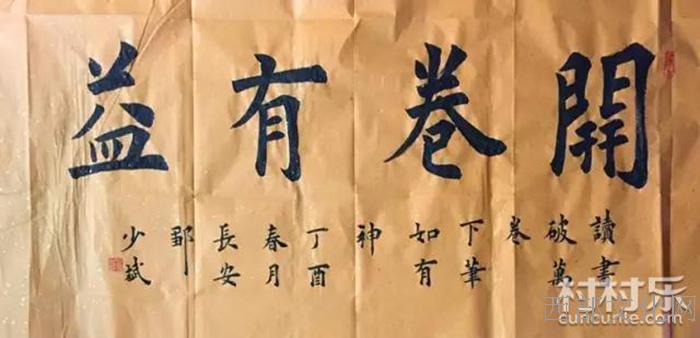 開卷有益
讀書
破萬
卷
下筆
如有
神
丁酉
春月
長安
鄒
少斌
村村乐
cuncunle.com